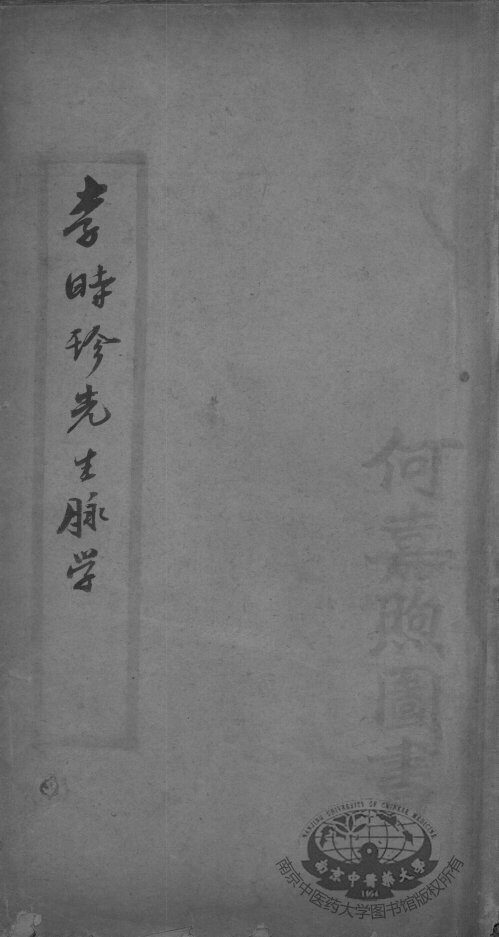 李時珍先生脉学
何嘉煦圖書
NANJING UNIVERSITY OF CHINESE MEDICINE
南京中醫藥大學
1954
南京中医药大学图书馆版权所有